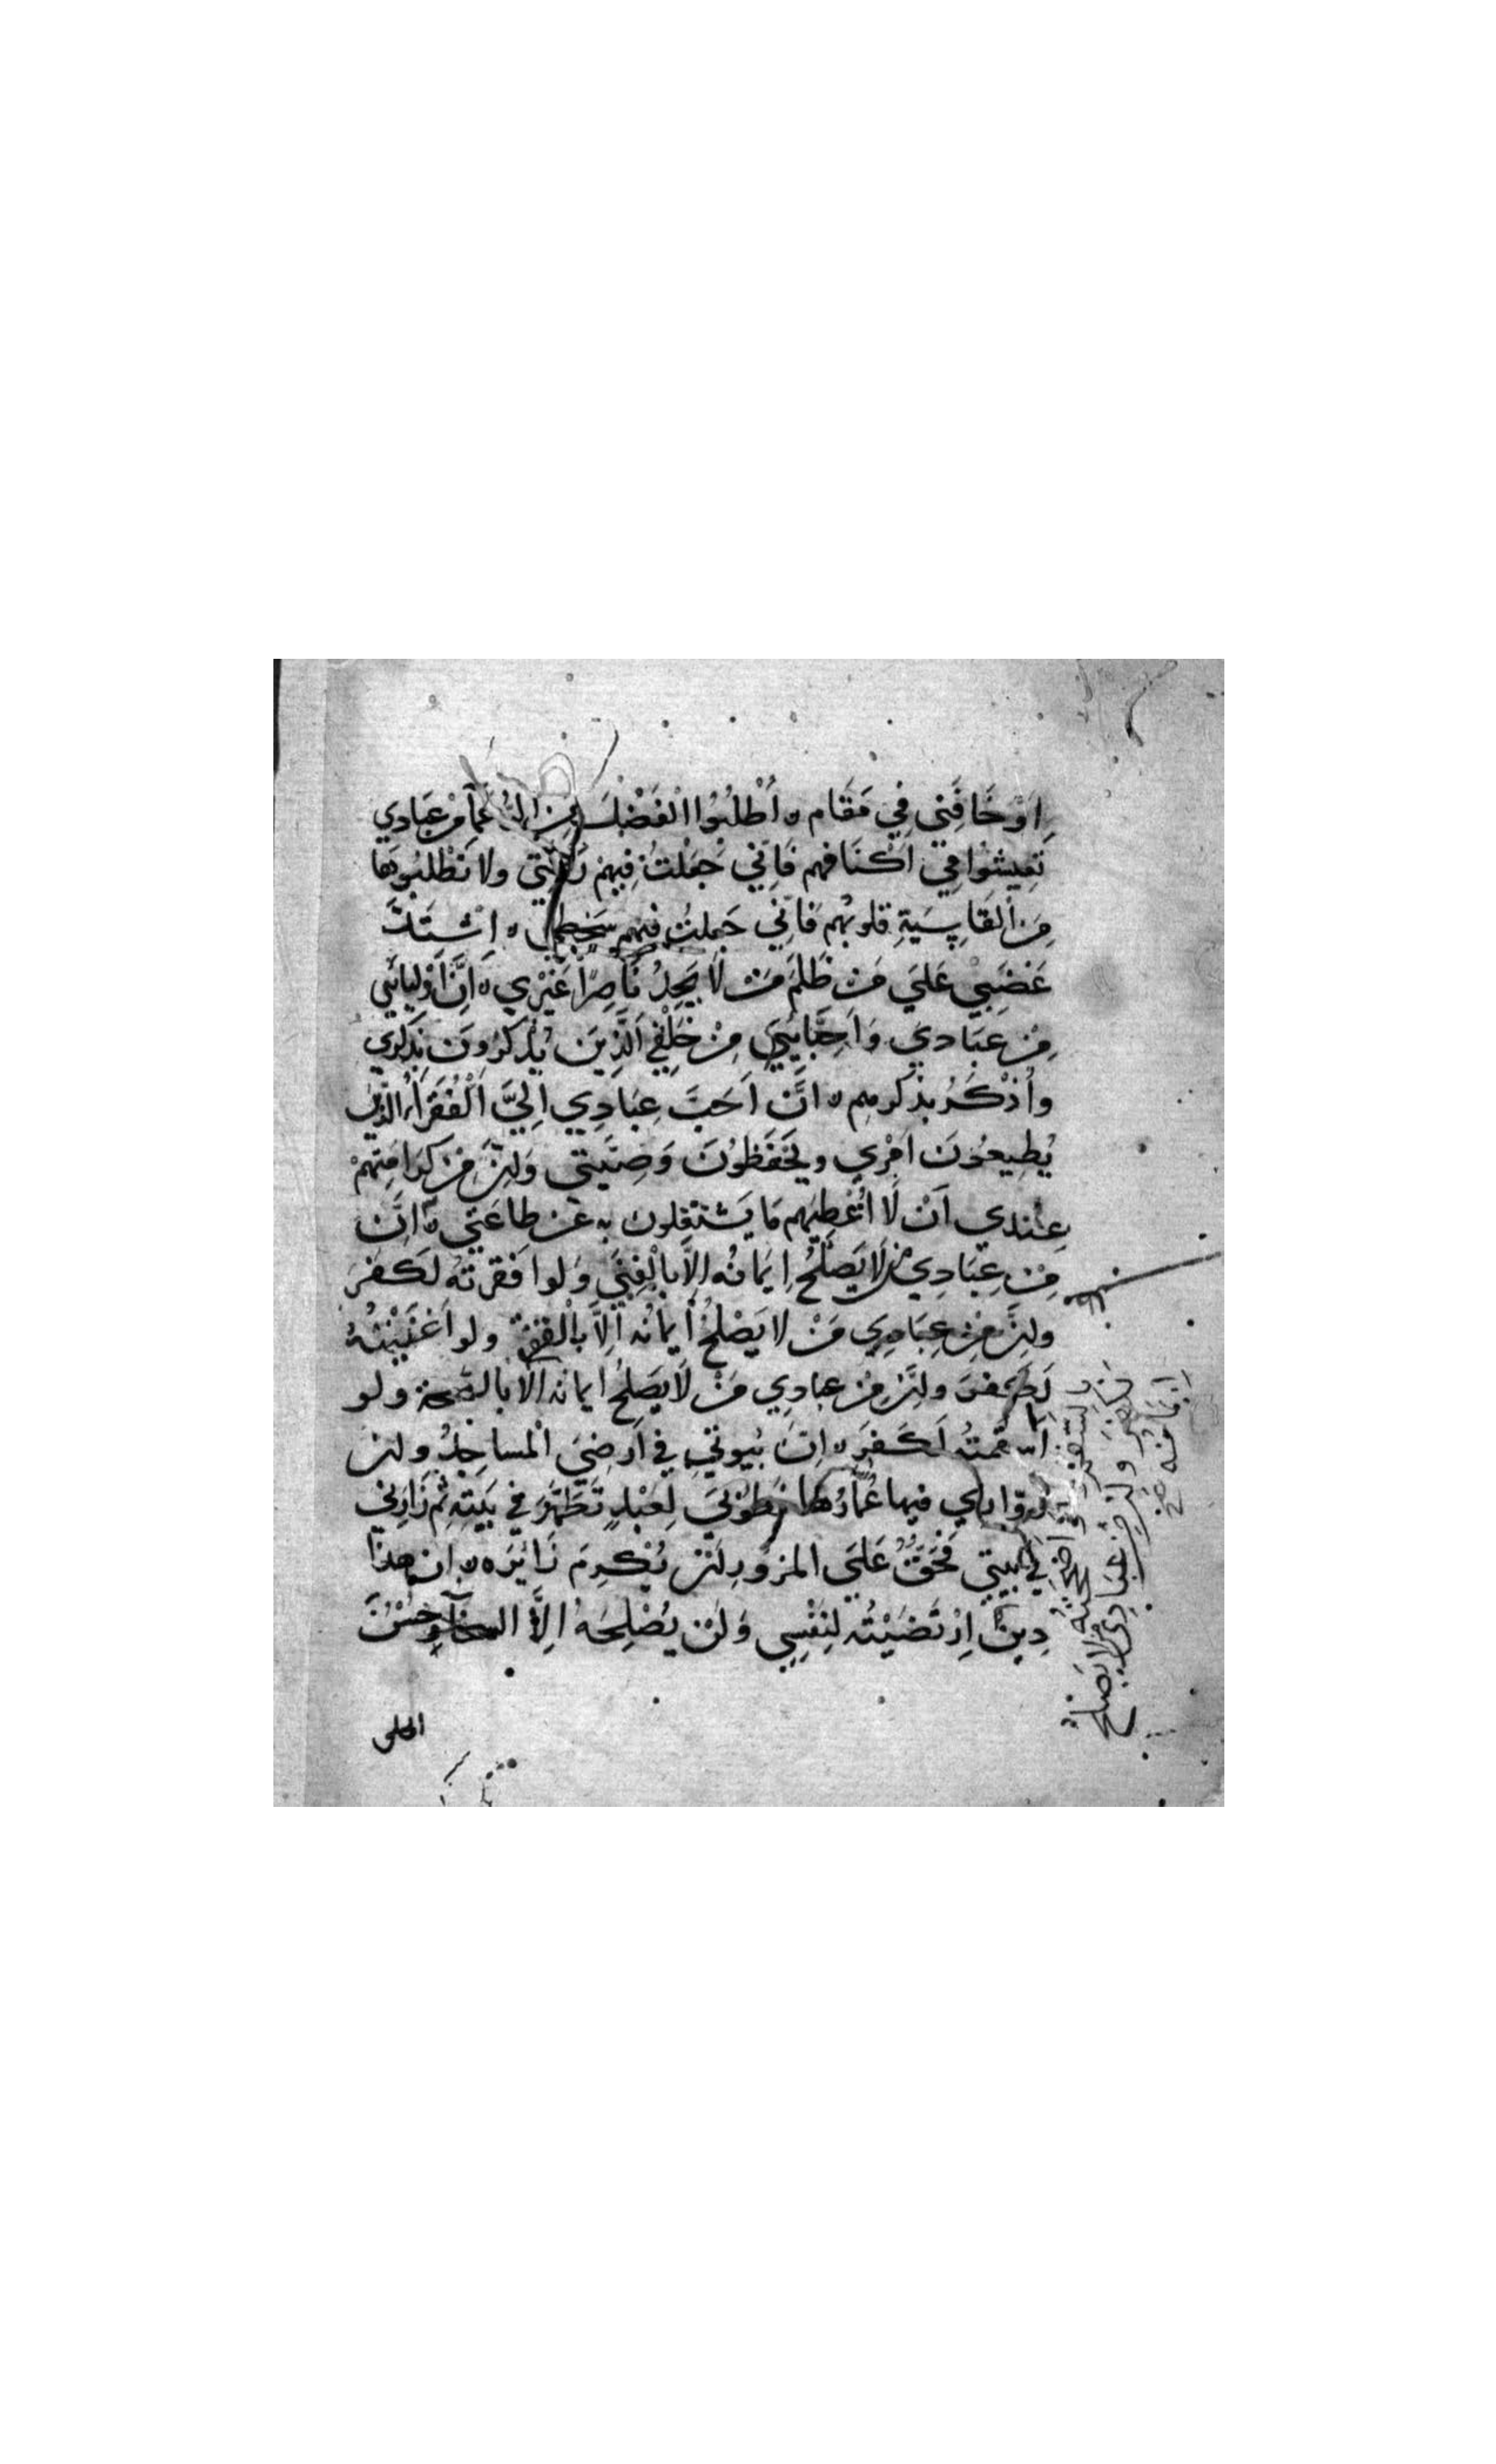 اَوْ خَافَنِي فِي مَقَام ہ اُطْلُبُوا الْفَضْلَ مِنَ الرُّحَمَآءِ مِنْ عِبَادِي
تَعِيشُوا فِي اَكْنَافِهِم فَاِنِّي جَعَلْتُ فِيهِمْ رَحْمَتِي ولا تَطْلُبُوهَا
مِنَ القَاسِيَةِ قلوبُهم فَاِنِّي جَعلتُ فيهم سَخَطِي ہ اشْتَدَّ
غَضَبِي عَلَي مَنْ ظَلَمَ مَنْ لَا يَجِدُ نَاصِرًا غَيْرِي ہ اِنَّ اَوْلِيائي
مِنْ عِبَادِي وَاَحِبَّايئي مِنْ خَلْقِي الَّذِينَ يُذْكَرُونَ بِذِكْرِي
واُذْكَرُ بذكرهِم ہ اِنَّ اَحَبَّ عِبَادِي اِلَيَّ الْفُقَرَاءُ الَّذِينَ
يُطِيعُونَ اَمْرِي ويَحْفَظُونَ وَصِيَّتِي وَاِنَّ مِنْ كَرَامَتِهِمْ
عِنْدي اَنْ لَا اُعْطِيَهم مَا يَشْتَغِلون به عَن طاعَتي ہ اِنَّ
مِنْ عِبَادِي مَنْ لَا يَصْلُحُ اِيمَانُه اِلَّا بِالْغِنَي وَلو اَفقرتُه لَكفَرَ
واِنَّ مِنْ عِبَادِي مَنْ لا يَصْلُحُ اِيمانُه اِلَّا بالْفَقْرِ ولو اَغْنَيْتُهُ
لَكَفَرَ واِنَّ مِنْ عبادِي مَنْ لَا يَصلُحُ ايمانه الّا بالصّحة ولو
اَسْقَمتُه لَكَفَرَ ہ اِنَّ بُيُوتِي في اَرضِيَ الْمساجِدُ وانّ
زُوّاري فيها عُمَّارُها فطُوْبَي لِعَبْدٍ تَطَهَّرَ في بَيْتِه ثُمَّ زَارَنِي
فِي بَيتي فَحَقٌّ عَلَي المزُورِ اَنْ يُكْرِمَ زَائِرَه ہ اِنَّ هذَا
دِينٌ اِرْتَضَيْتُه لِنَفْسِي وَلَنْ يُصْلِحَهُ اِلَّا السخآ وحُسْنُ
الخلق
واِنَّ مِنْ عِبَادِي مَنْ لا يَصْلُح